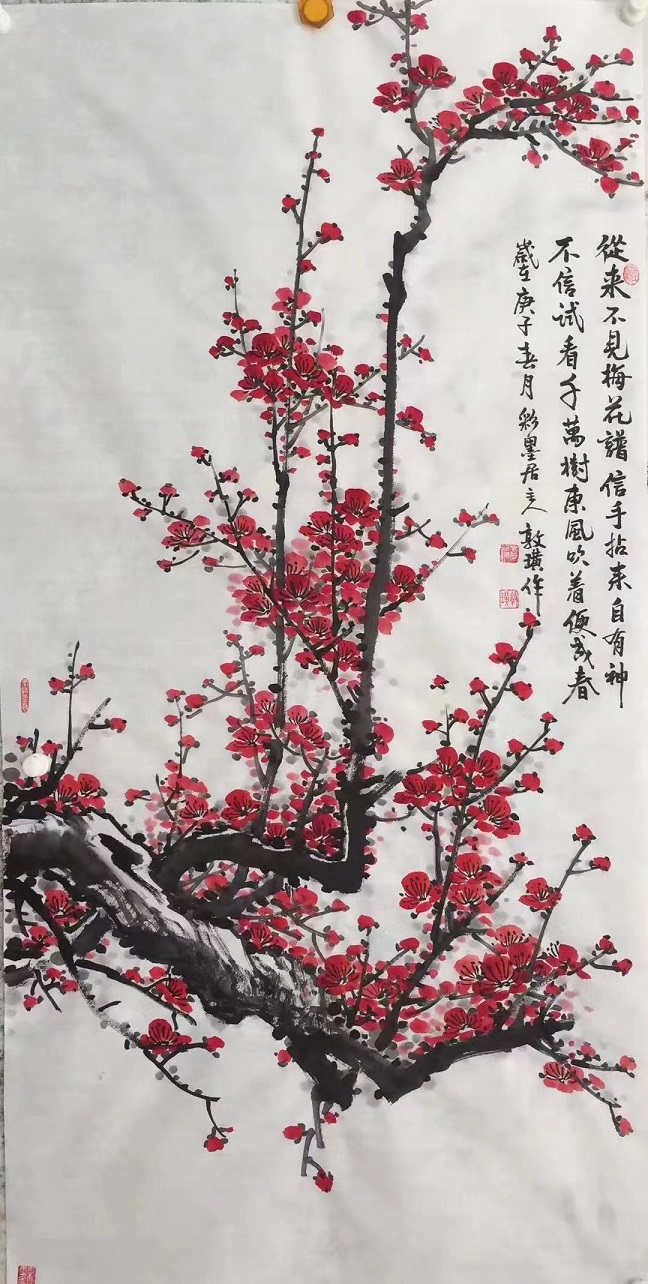 從来不見梅花譜信手拈来自有神
不信試看千萬樹東風吹着便成春
歲在庚子春月彩墨居主人敦璜作